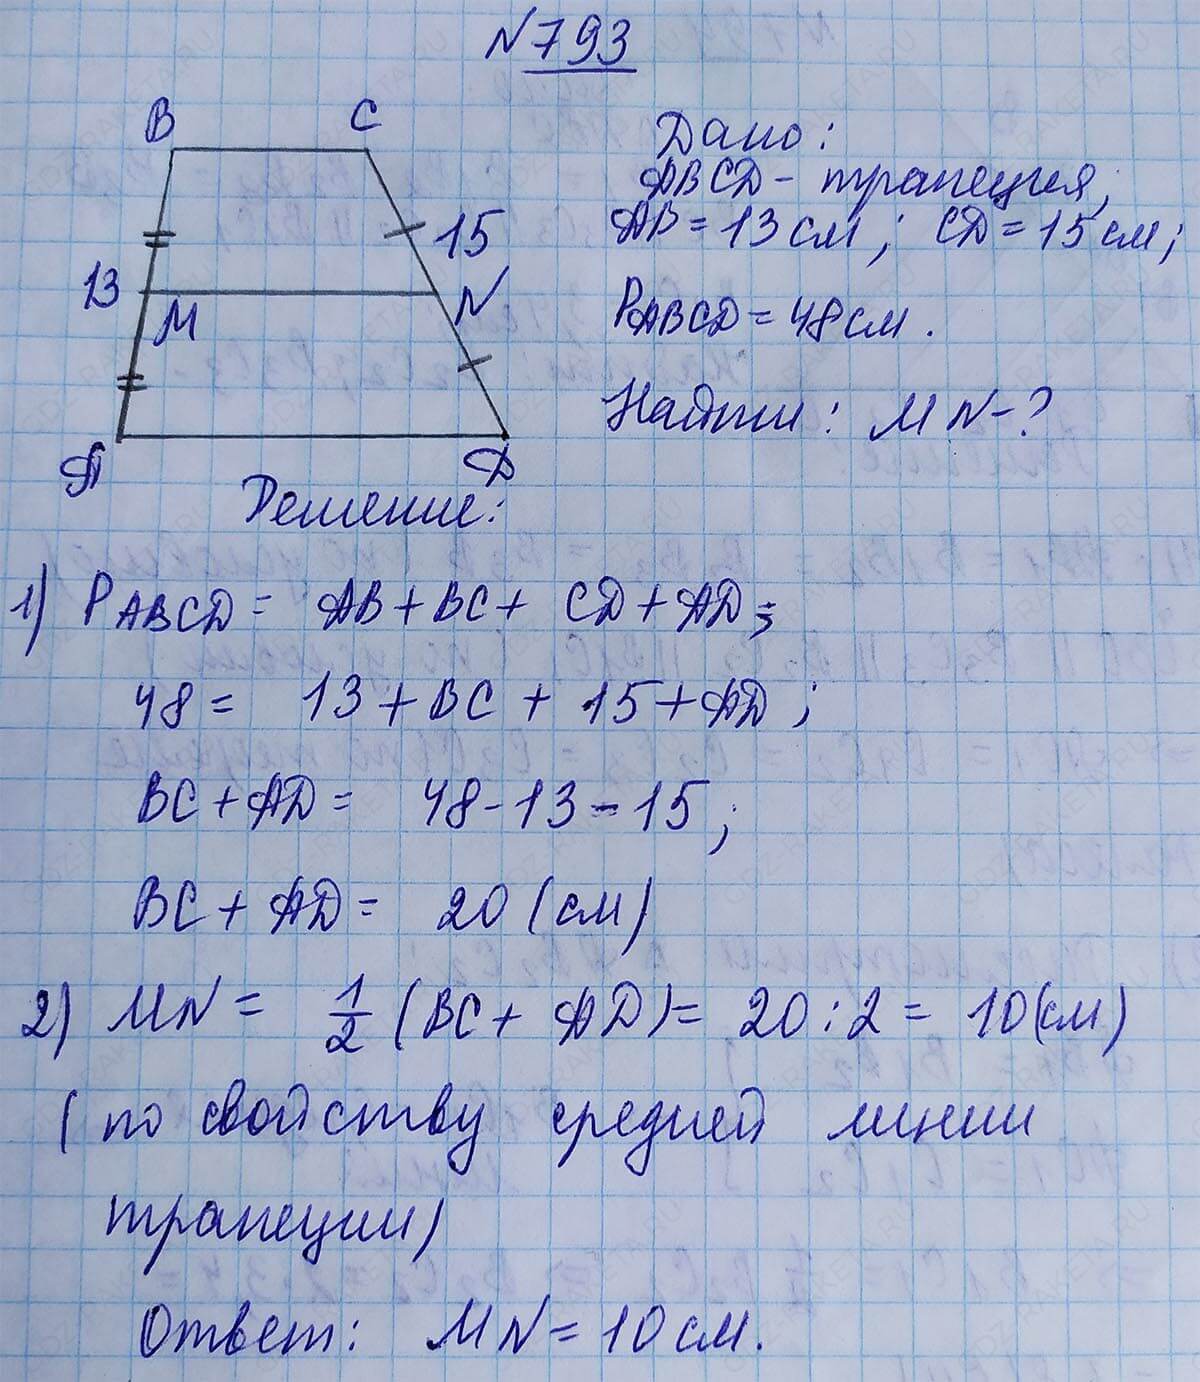 №793
B C
Дано:
ABCD - трапеция,
AB = 13 см; CD = 15 см;
15
13
M N
PABCD = 48 см.
Найти: MN - ?
A D
Решение:
1) PABCD = AB + BC + CD + AD;
48 = 13 + BC + 15 + AD;
BC + AD = 48 - 13 - 15;
BC + AD = 20 (см)
2) MN = 1/2 (BC + AD) = 20 : 2 = 10 (см)
(по свойству средней линии
трапеции)
Ответ: MN = 10 см.